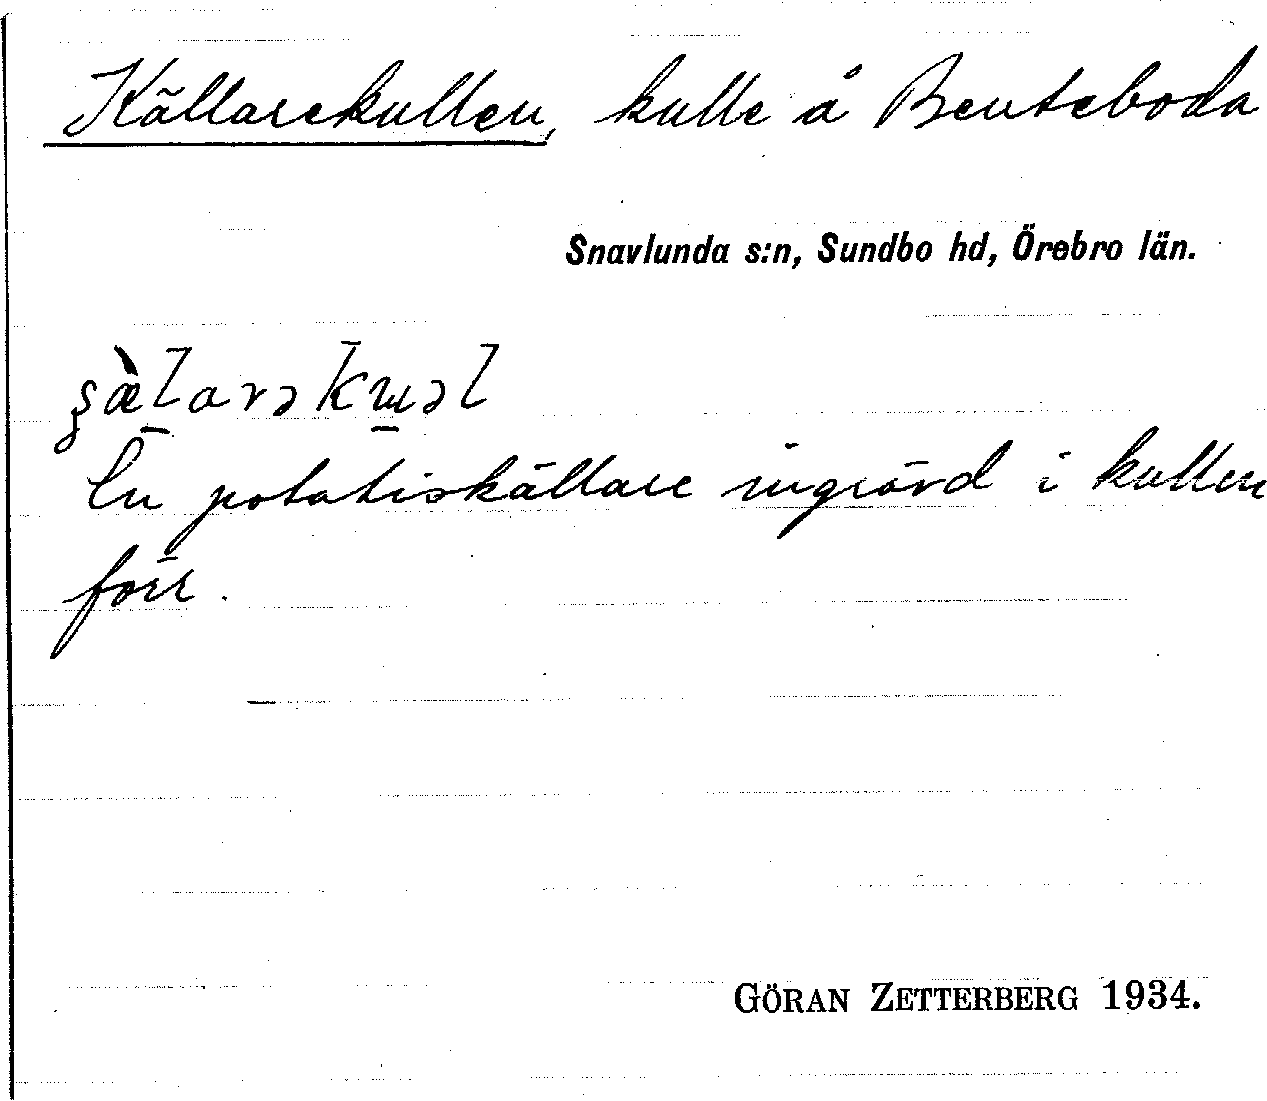 Källarekullen, kulle å Benteboda
Snavlunda s:n, Sundbo hd, Örebro län.
En potatiskällare ingrävd i kullen
förr.
GÖRAN ZETTERBERG 1934.